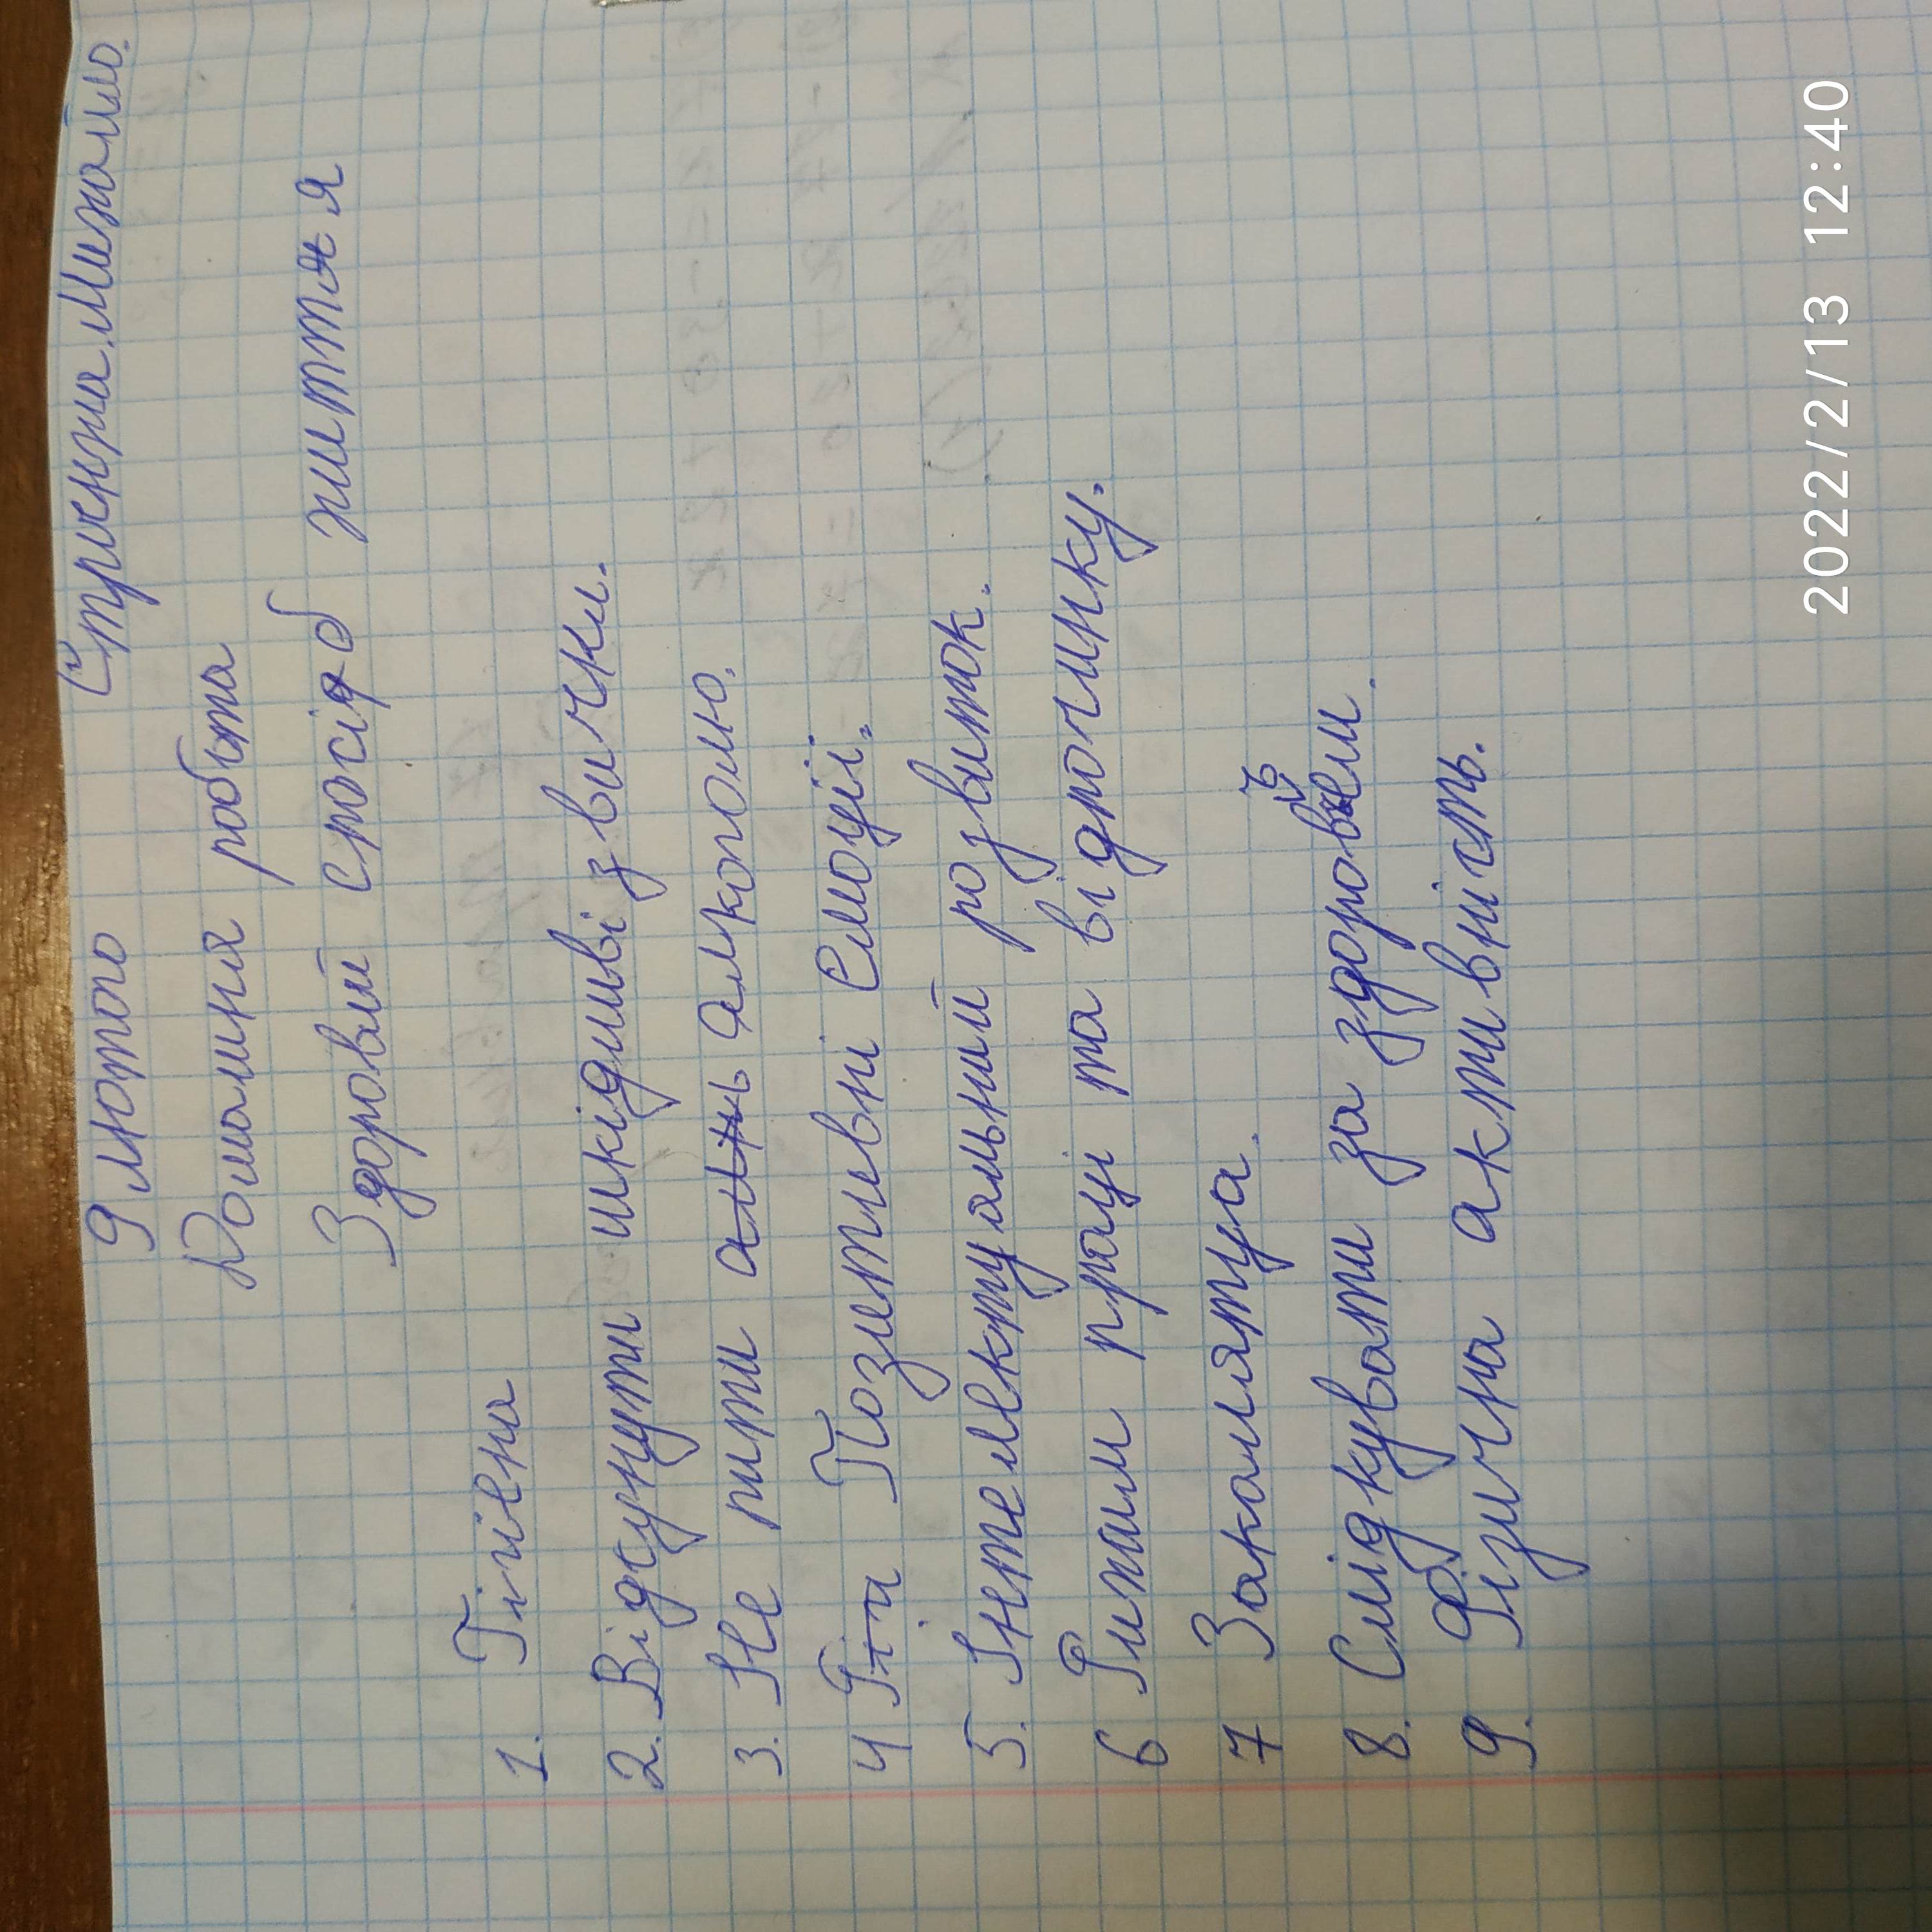 9 лютого Стрченна. Михайло.
Домашня робота
Здоровий спосіб життя
1. Гігієна
2. Відсунути шкідливі звички.
3. Не пити алкоголю.
4 Позетивні Ємоції.
5. Інтелектуальний розвиток.
6 Рижим праці та відпочинку.
7 Закалятуа.
8. Слідкувати за здоровьем.
9. Фізична активність.
2022/2/13 12:40